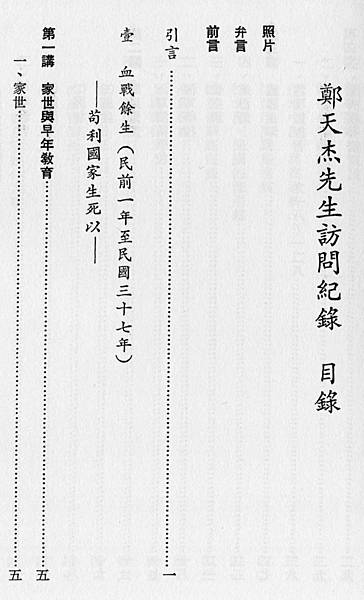 鄭天杰先生訪問紀錄　目錄
照片
弁言
前言
引言……………………………………一
壹　血戰餘生（民前一年至民國三十七年）
——苟利國家生死以——
第一講　家世與早年教育……………………………………五
一、家世……………………………………五